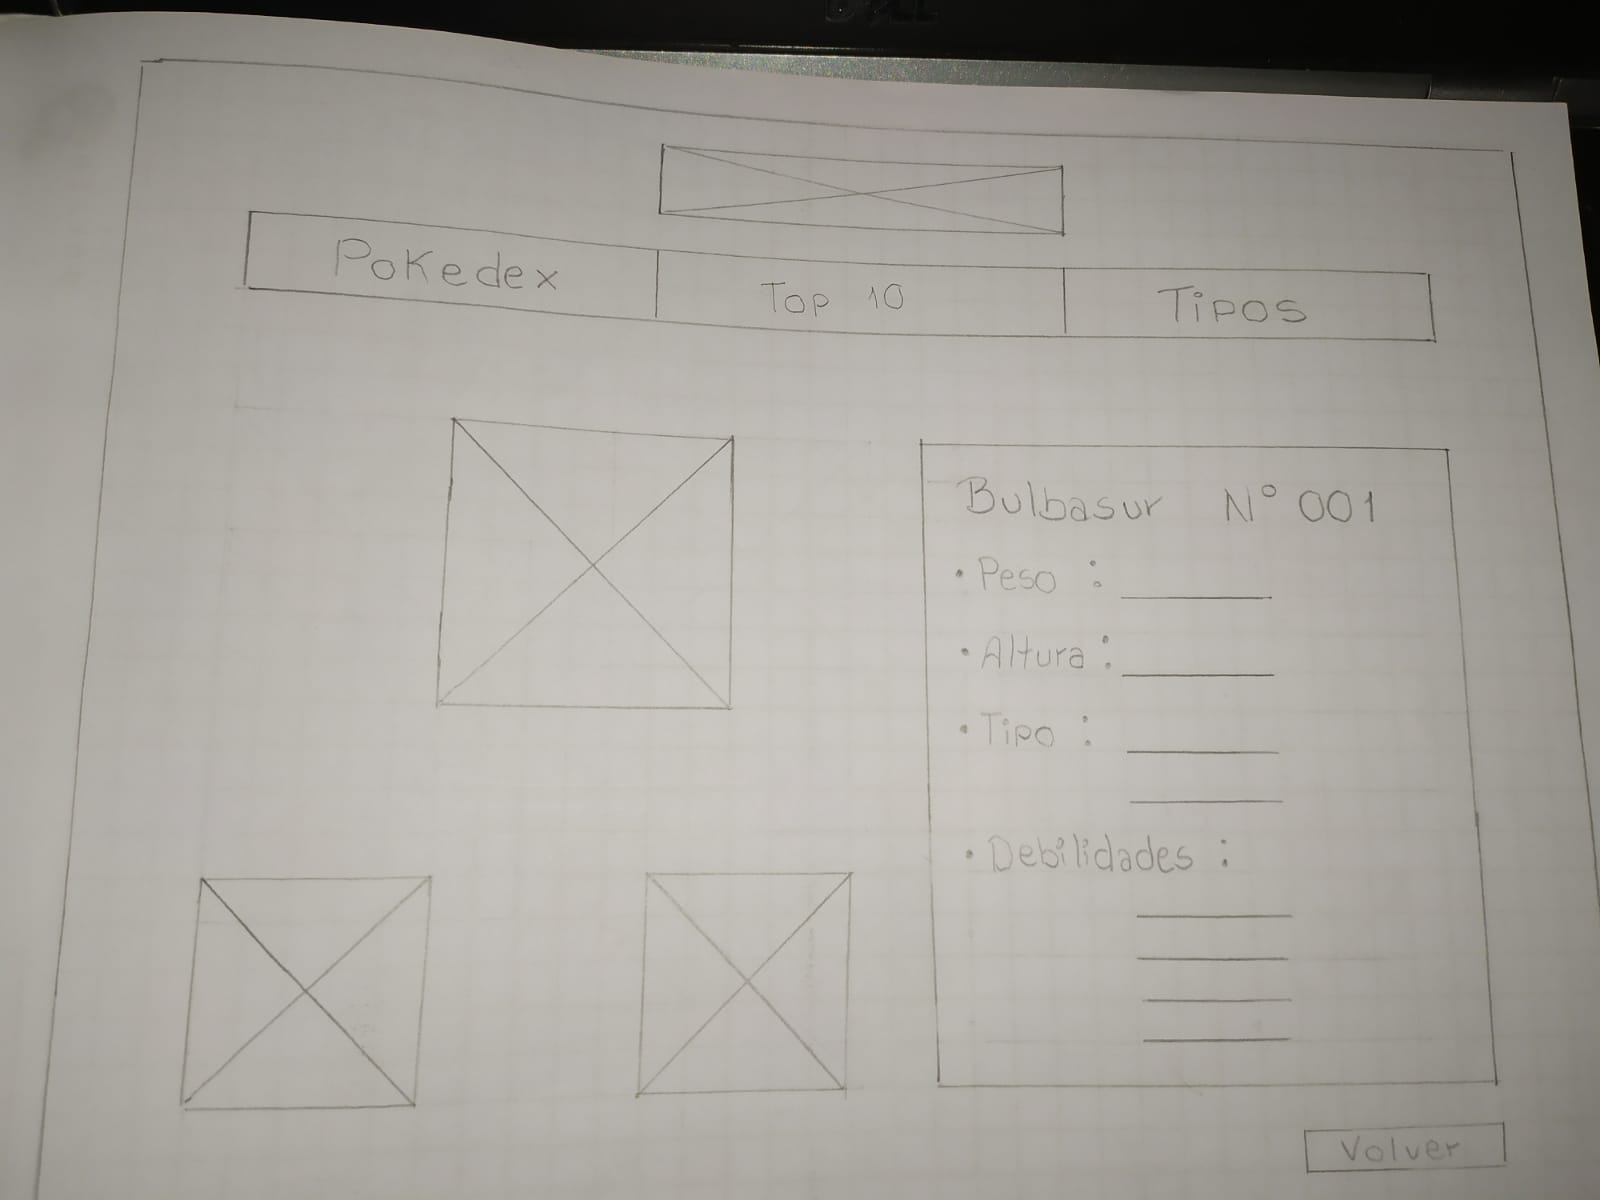 Pokedex Top 10 Tipos
Bulbasur N° 001
• Peso :
• Altura :
• Tipo :
• Debilidades :
Volver